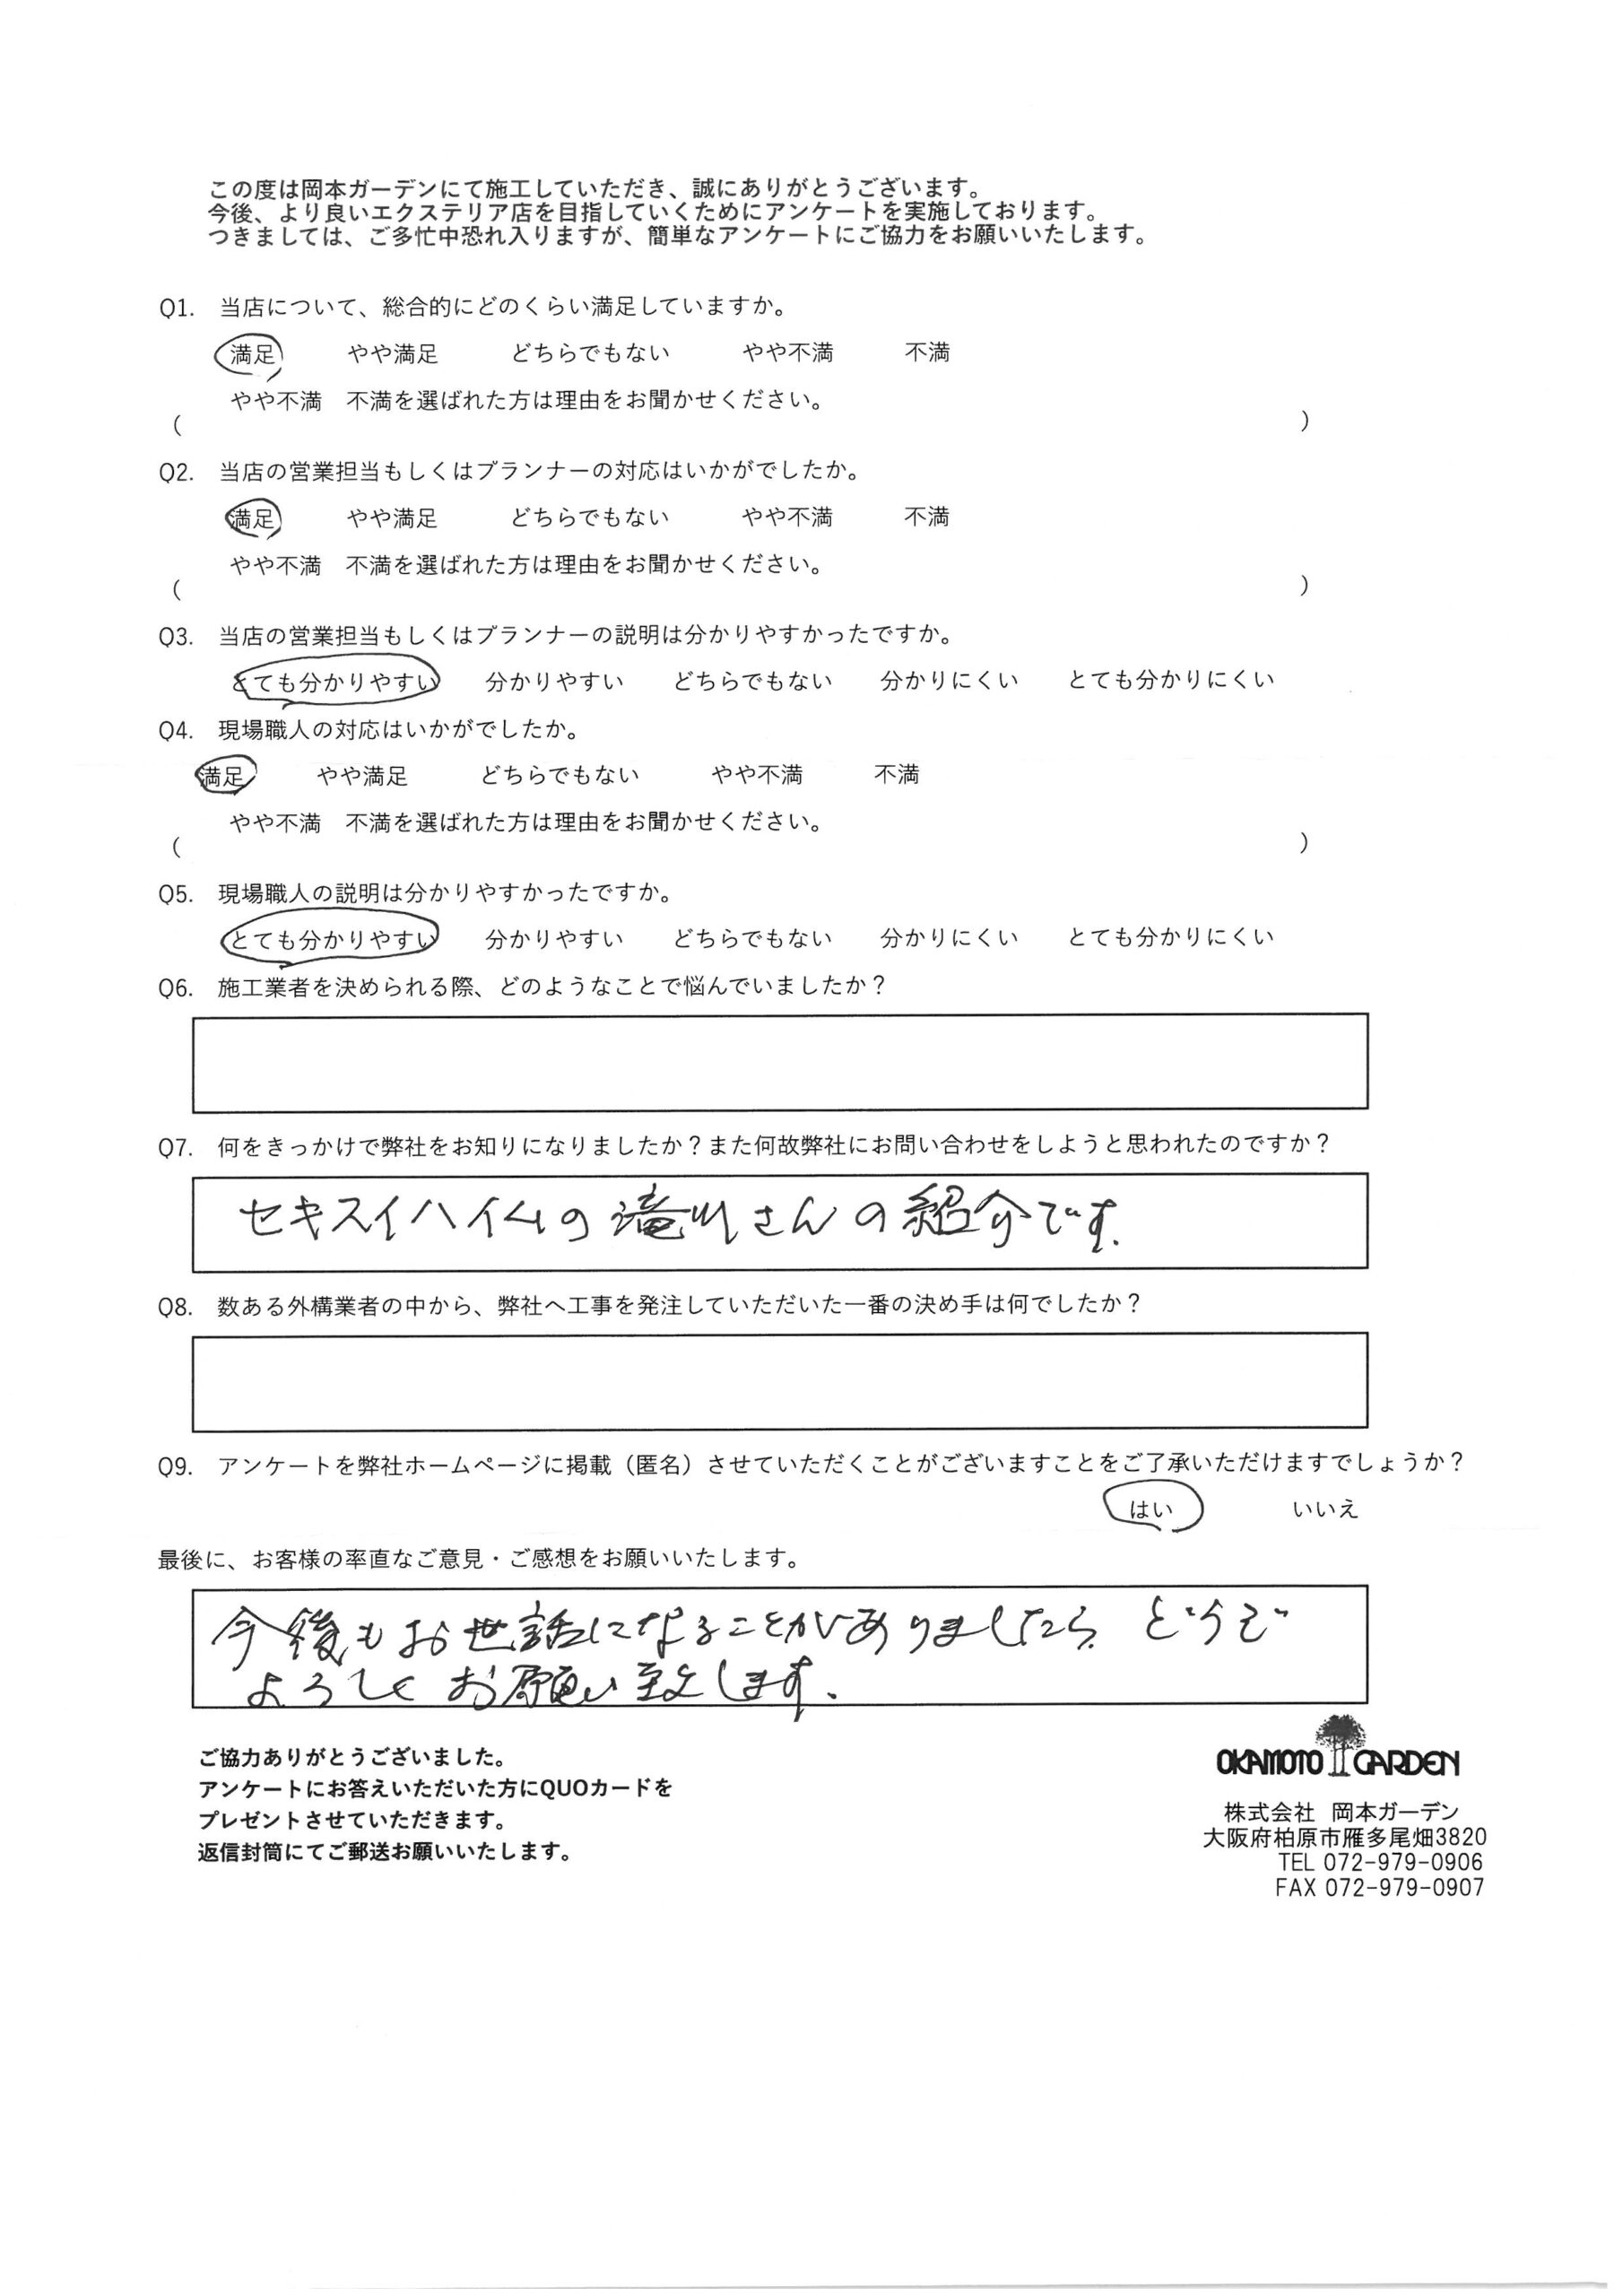 この度は岡本ガーデンにて施工していただき、誠にありがとうございます。
今後、より良いエクステリア店を目指していくためにアンケートを実施しております。
つきましては、ご多忙中恐れ入りますが、簡単なアンケートにご協力をお願いいたします。
Q1. 当店について、総合的にどのくらい満足していますか。
満足 やや満足 どちらでもない やや不満 不満
やや不満 不満を選ばれた方は理由をお聞かせください。
( )
Q2. 当店の営業担当もしくはプランナーの対応はいかがでしたか。
満足 やや満足 どちらでもない やや不満 不満
やや不満 不満を選ばれた方は理由をお聞かせください。
( )
Q3. 当店の営業担当もしくはプランナーの説明は分かりやすかったですか。
とても分かりやすい 分かりやすい どちらでもない 分かりにくい とても分かりにくい
Q4. 現場職人の対応はいかがでしたか。
満足 やや満足 どちらでもない やや不満 不満
やや不満 不満を選ばれた方は理由をお聞かせください。
( )
Q5. 現場職人の説明は分かりやすかったですか。
とても分かりやすい 分かりやすい どちらでもない 分かりにくい とても分かりにくい
Q6. 施工業者を決められる際、どのようなことで悩んでいましたか？
Q7. 何をきっかけで弊社をお知りになりましたか？また何故弊社にお問い合わせをしようと思われたのですか？
セキスイハイムの滝川さんの紹介です.
Q8. 数ある外構業者の中から、弊社へ工事を発注していただいた一番の決め手は何でしたか？
Q9. アンケートを弊社ホームページに掲載（匿名）させていただくことがございますことをご了承いただけますでしょうか？
はい いいえ
最後に、お客様の率直なご意見・ご感想をお願いいたします。
今後もお世話になることがありましたら、どうぞ
よろしくお願い致します.
ご協力ありがとうございました。
アンケートにお答えいただいた方にQUOカードを
プレゼントさせていただきます。
返信封筒にてご郵送お願いいたします。
OKAMOTO GARDEN
株式会社 岡本ガーデン
大阪府柏原市雁多尾畑3820
TEL 072-979-0906
FAX 072-979-0907